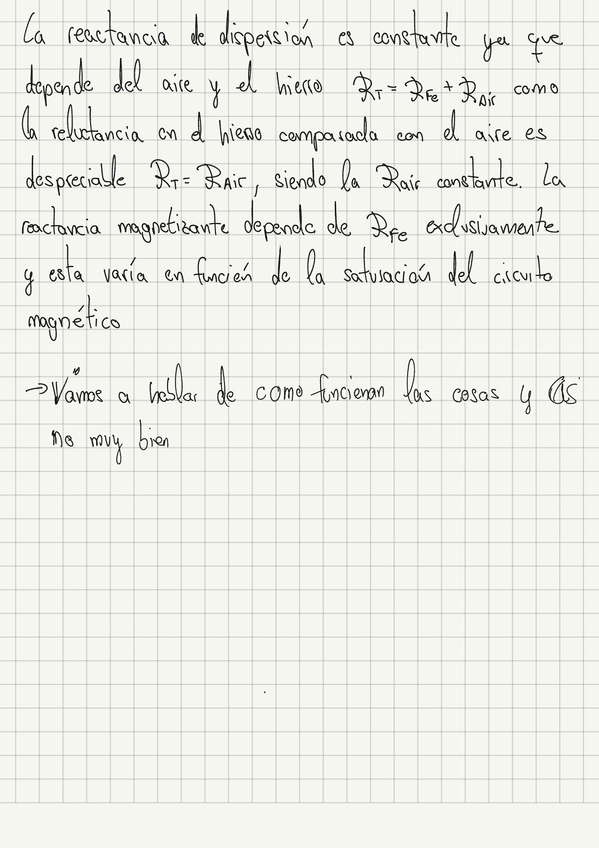 La reactancia de dispersión es constante ya que
depende del aire y el hierro ℛT = ℛFe + ℛAir como
la reluctancia en el hierro comparada con el aire es
despreciable ℛT = ℛAir, siendo la ℛair constante. La
reactancia magnetizante depende de ℛFe exclusivamente
y esta varía en función de la saturación del circuito
magnético
→ Vamos a hablar de como funcionan las cosas y
no muy bien